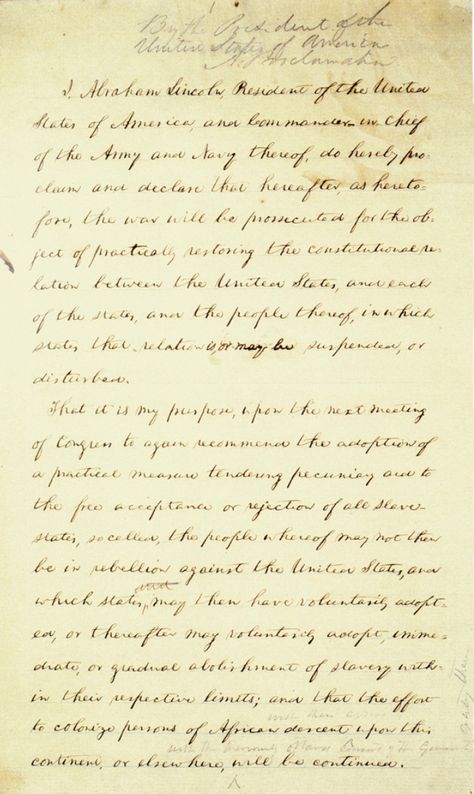 By the President of the
United States of America
A Proclamation
I, Abraham Lincoln, President of the United
States of America, and Commander-in-Chief
of the Army and Navy thereof, do hereby pro-
claim and declare that hereafter, as hereto-
fore, the war will be prosecuted for the ob-
ject of practically restoring the constitutional re-
lation between the United States, and each
of the states, and the people thereof, in which
states that relation is, or may be suspended, or
disturbed.
That it is my purpose, upon the next meeting
of Congress to again recommend the adoption of
a practical measure tendering pecuniary aid to
the free acceptance or rejection of all slave-
states, so called, the people whereof may not then
be in rebellion against the United States, and
and
which states, may then have voluntarily adopt-
ed, or thereafter may voluntarily adopt, imme-
diate, or gradual abolishment of slavery with-
in their respective limits; and that the effort
with their consent
to colonize persons of African descent upon this
with the
continent, or elsewhere, will be continued.